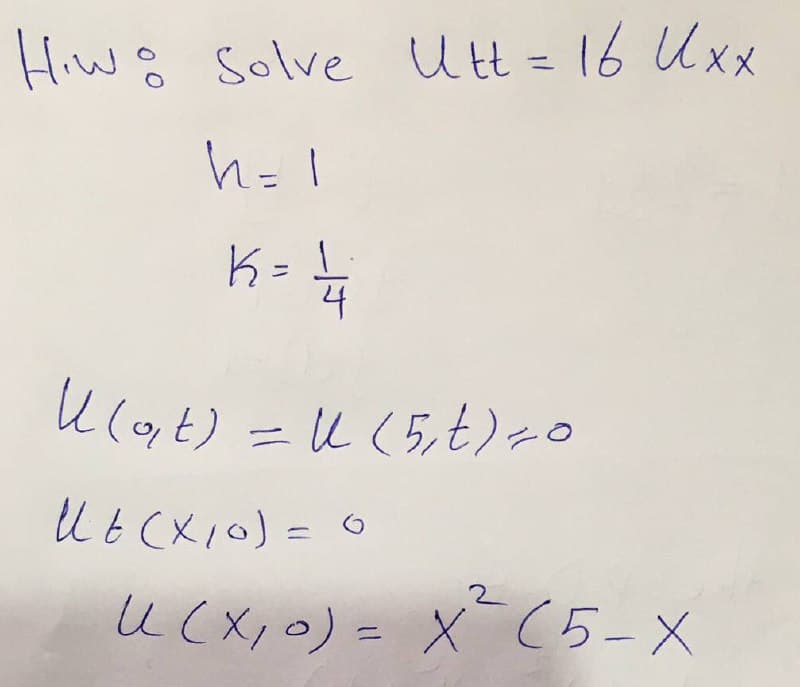 H.W: Solve Utt = 16 Uxx
h = 1
K = 1/4
U(0,t) = U(5,t) = 0
Ut(x,0) = 0
U(x,0) = x²(5-x